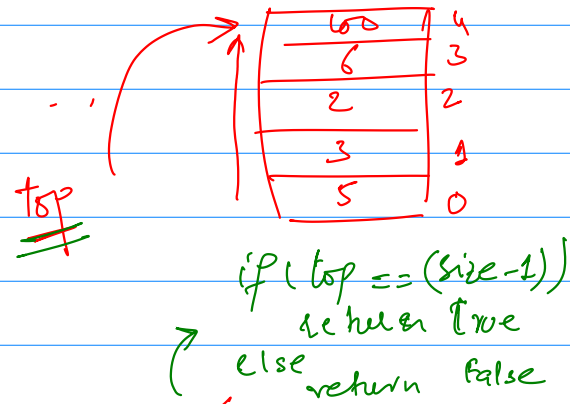 100 4
6 3
2 2
3 1
5 0
top
if ( top == (size-1))
return True
else
return False